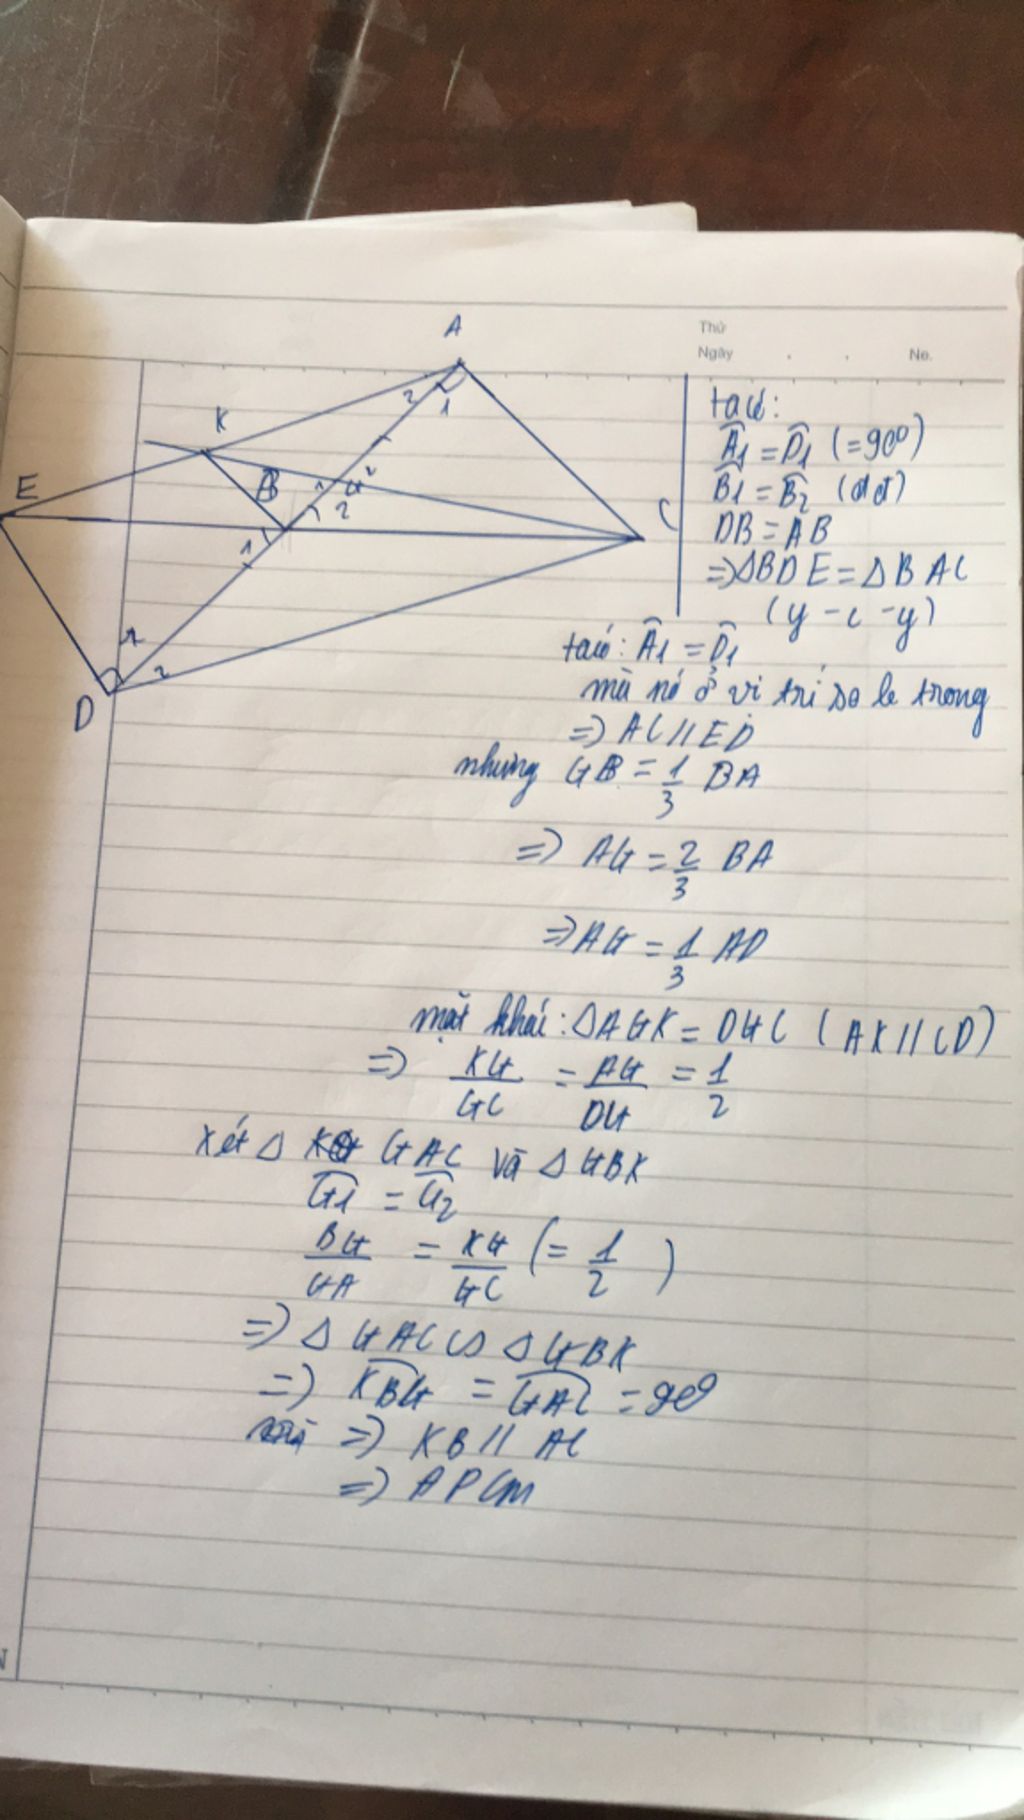 A
Thứ
Ngày . . No.
K
2
1
E
B
1
G
2
2
C
1
1
2
D
ta có:
Â1 = D̂1 (=90°)
B̂1 = B̂2 (đđ)
DB = AB
=> ΔBDE = ΔBAC
(g - c - g)
ta có: Â1 = D̂1
mà nó ở vi trí so le trong
=> AC // ED
nhưng GB = 1/3 BA
=> AG = 2/3 BA
=> AG = 1/3 AD
mặt khác: ΔAGK = DGC (AK // CD)
=> KG/GC = AG/DG = 1/2
Xét Δ GAC và Δ GBK
Ĝ1 = Ĝ2
BG/GA = KG/GC (= 1/2)
=> Δ GAC ∽ Δ GBK
=> KBG = GAC = 90
=> KB // AC
=> ĐPCM